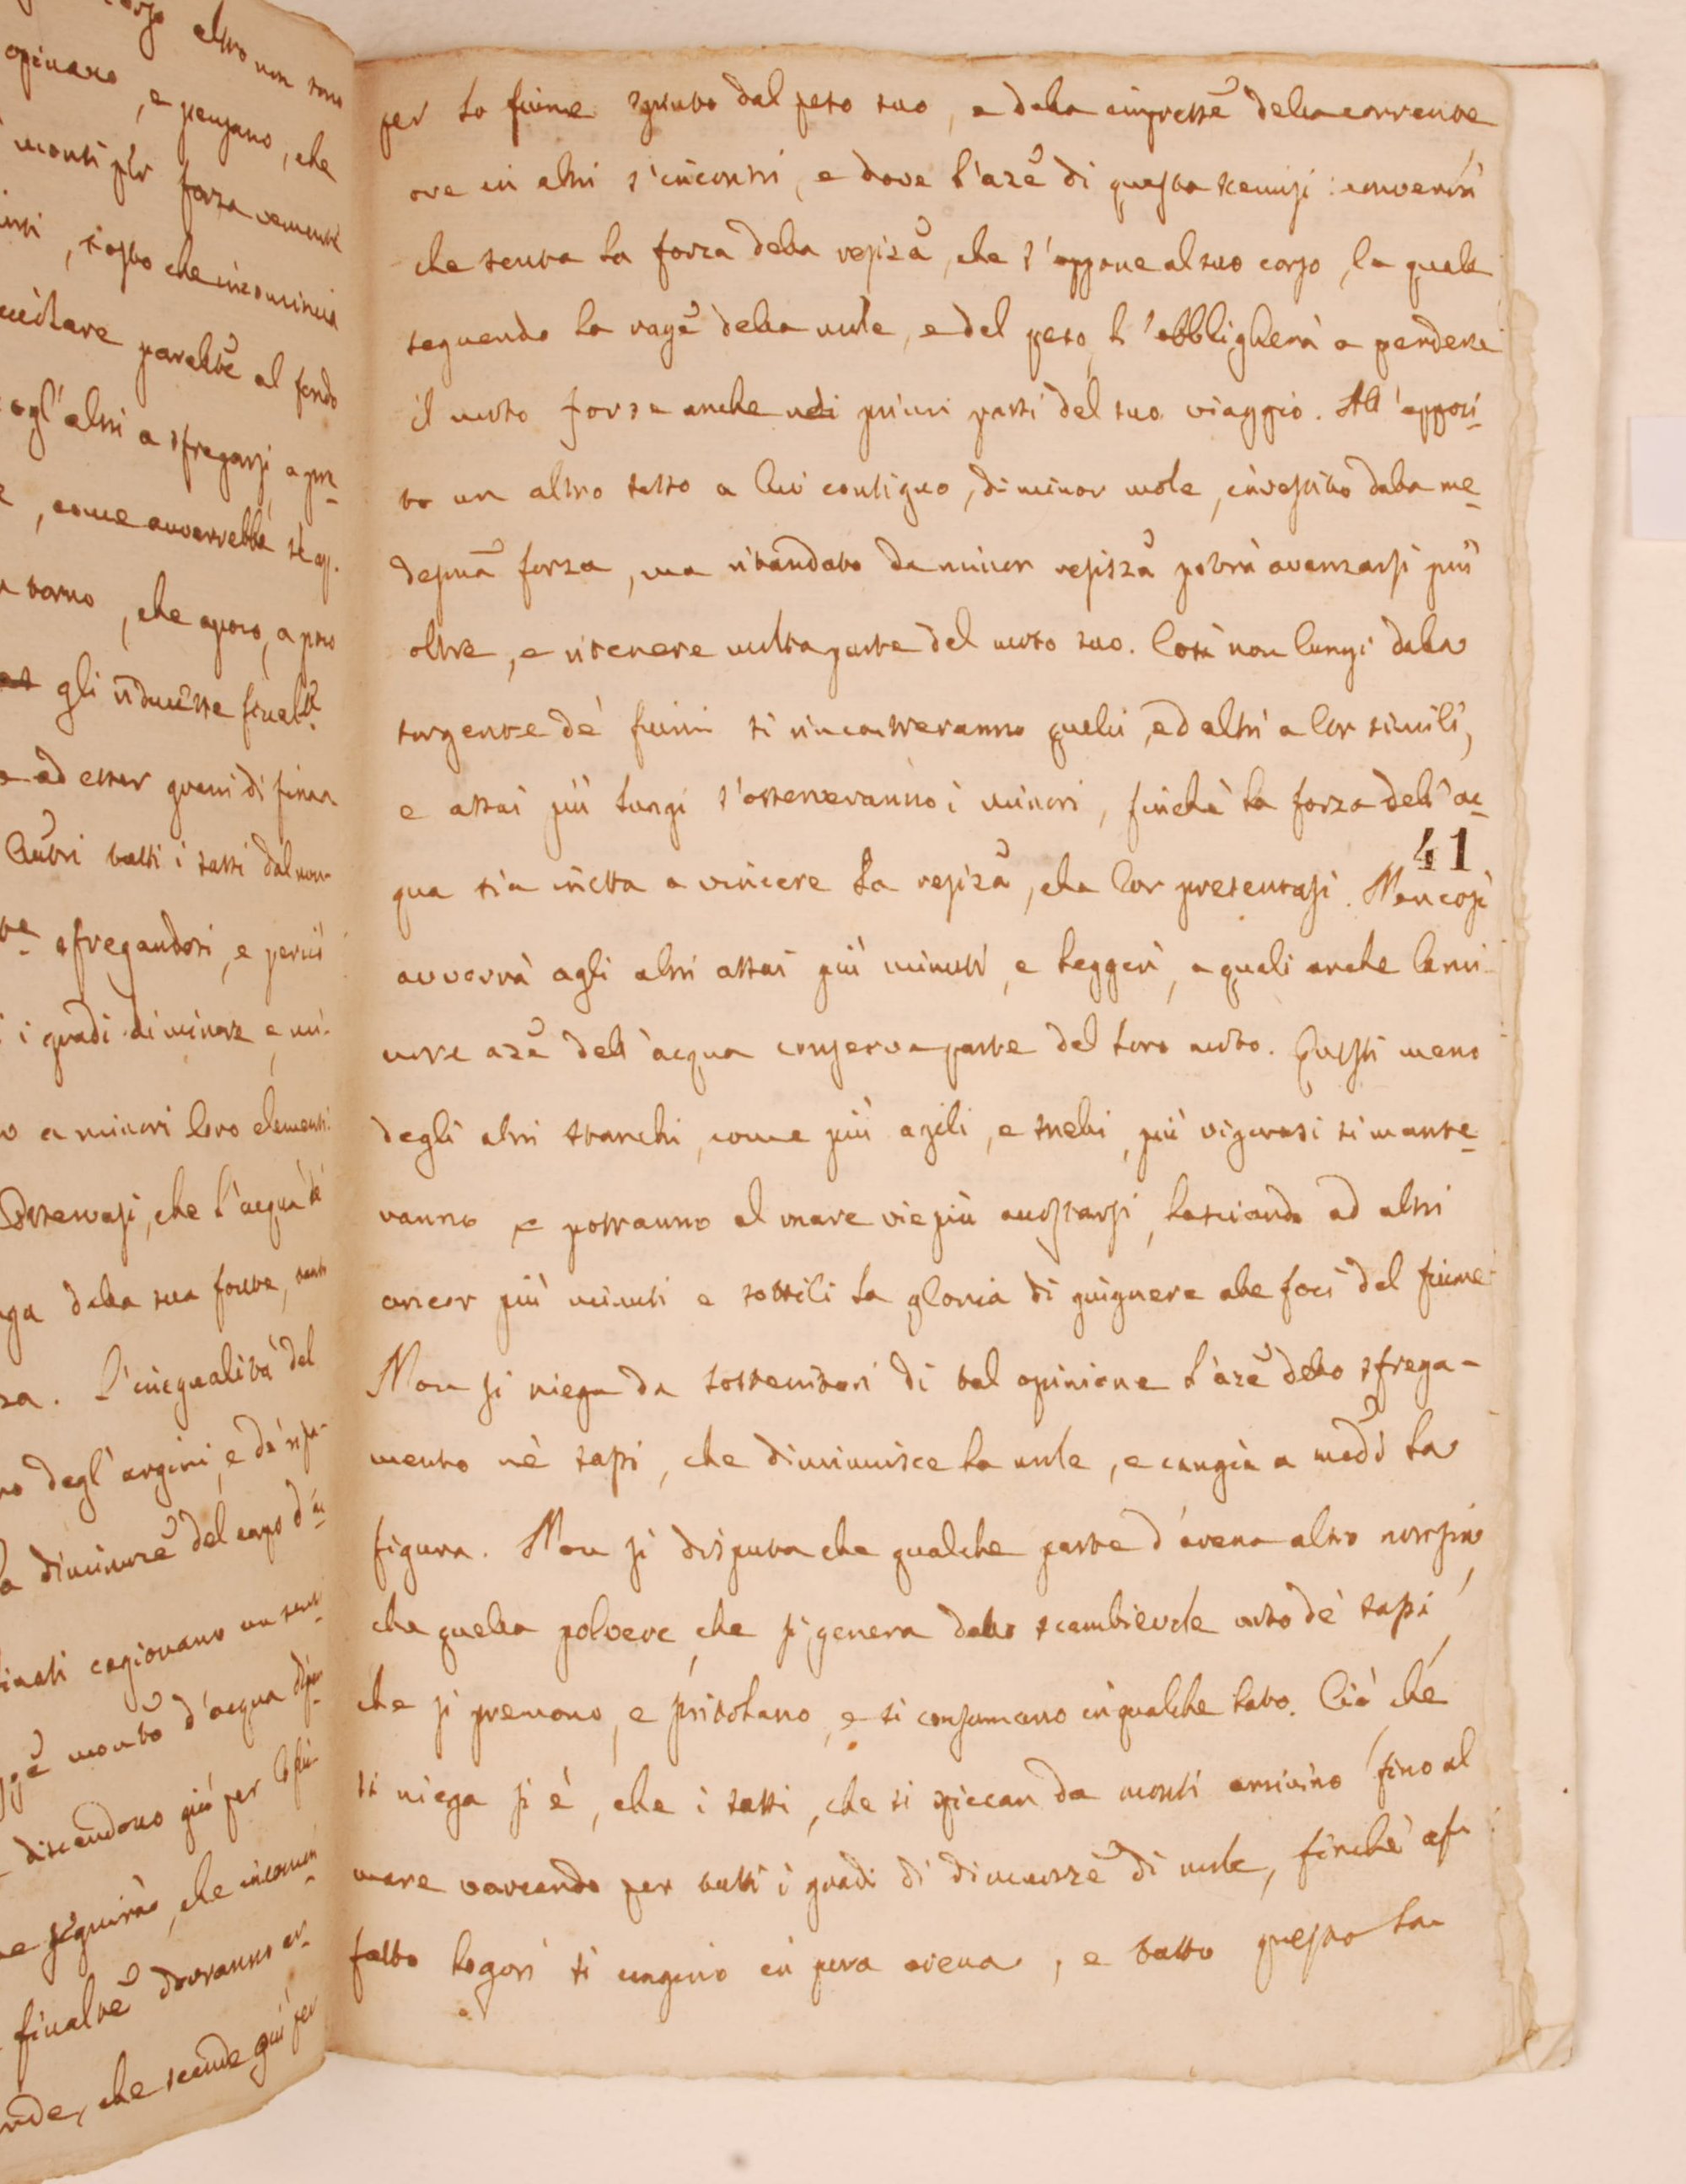 opinano, e pensano, che
monti per forza
, tosto che incomincia
al fondo
agl'altri a sfregarsi
, come avverrebbe se
, che a poco, a poco
gli riducesse
ad esser grani di
tutti i sassi dal
sfregandosi, e perciò
i gradi di minore, e mi-
a minori loro elementi.
Osservasi, che l'acqua
dalla sua fonte,
L'inegualità del
degl'argini, e de' ripa-
del corpo d'
cagionano un
d'acqua
discendono giù per
seguirà, che
dovranno
che scende giù per
per lo fiume spinto dal peso suo, e dalla impressẽ della corrente
ove in altri s'incontri, e dove l'azẽ di questa scemisi: converrà
che senta la forza della resisza͂, che s'oppone al suo corso, la quale
seguendo la ragẽ della mole, e del peso, l'obbligherà a perdere
il moto forse anche nei primi passi del suo viaggio. All'opposi-
to un altro sasso a lui contiguo, di minor mole, investito dalla me-
desima͂ forza, ma ritardato da minor resisza͂ potrà avanzarsi più
oltre, e ritenere molta parte del moto suo. Così non lungi dalla
sorgente de' fiumi si rincontreranno quelli, ed altri a lor simili,
e assai più lungi s'osserveranno i minori, finchè la forza dell'ac-
41
qua sia inetta a vincere la resisza͂, che lor presentasi. Non così
avverrà agli altri assai più minuti, e leggeri, a quali anche la mi-
nore azẽ dell'acqua conserva parte del loro moto. Questi meno
degli altri stanchi, come più agili, e snelli, più vigorosi si mante-
ranno e potranno al mare vie più accostarsi, lasciando ad altri
ancor più minuti e sottili la gloria di giugnere alle foci del fiume
Non si niega da sostenitori di tal opinione l'azẽ dello sfrega-
mento nè sassi, che diminuisce la mole, e cangia a med͂i la
figura. Non si disputa che qualche parte d'arena altro non sia,
che quella polvere, che si genera dallo scambievole urto dè sassi,
che si premono, e stritolano, e si consumano in qualche lato. Ciò che
si niega si è, che i sassi, che si spiccan da monti arrivino fino al
mare varcando per tutti i gradi di diminuzẽ di mole, finchè af-
fatto logori si cangino in pura arena, e tutto questo la